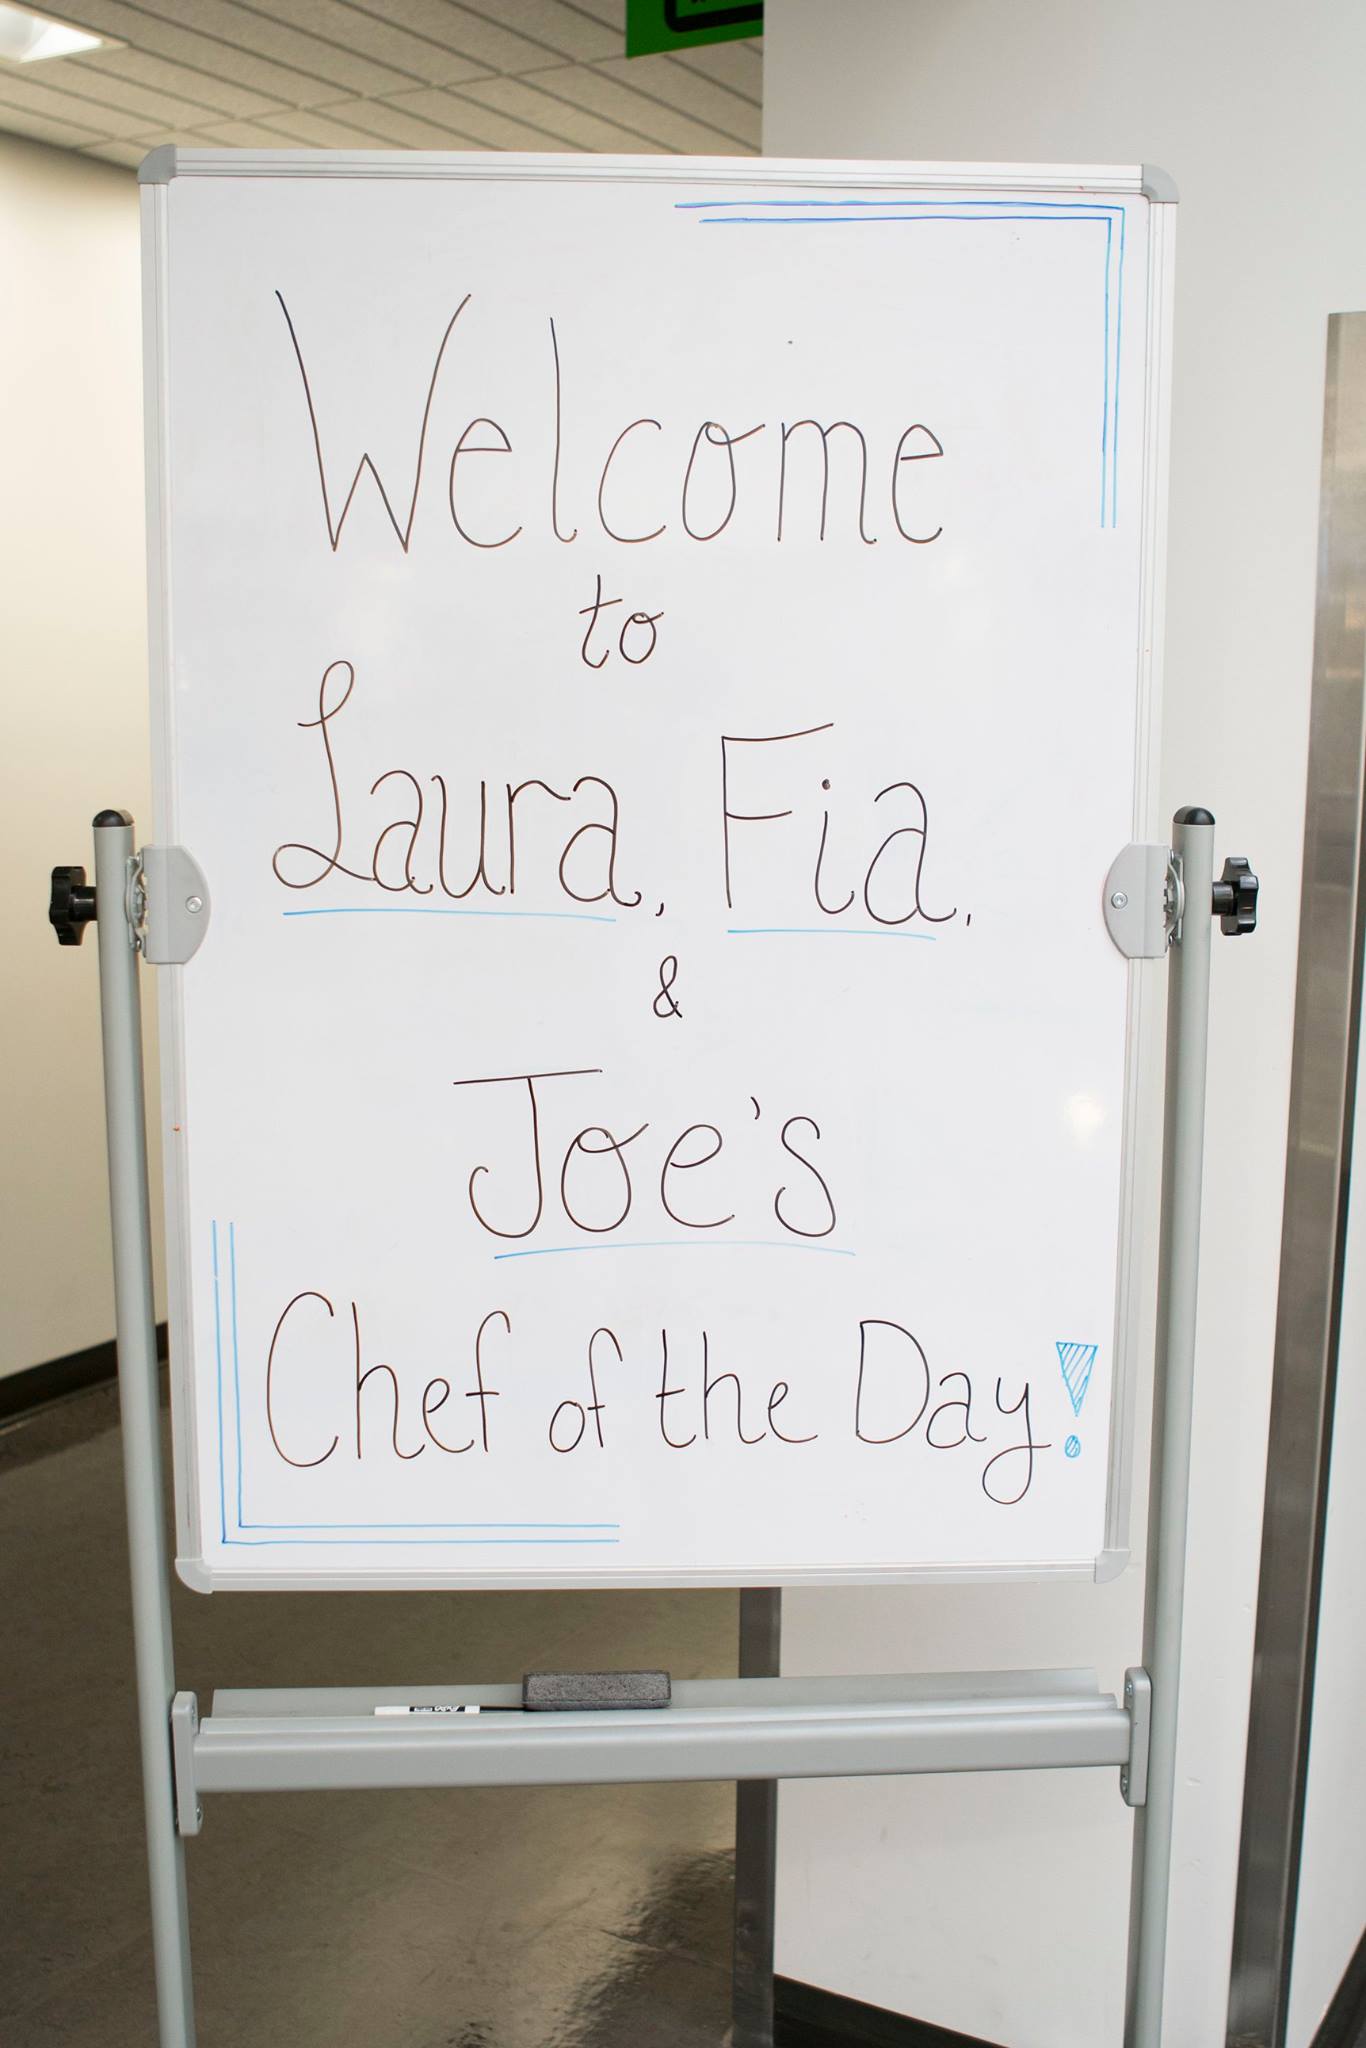 Welcome
to
Laura, Fia,
&
Joe's
Chef of the Day!